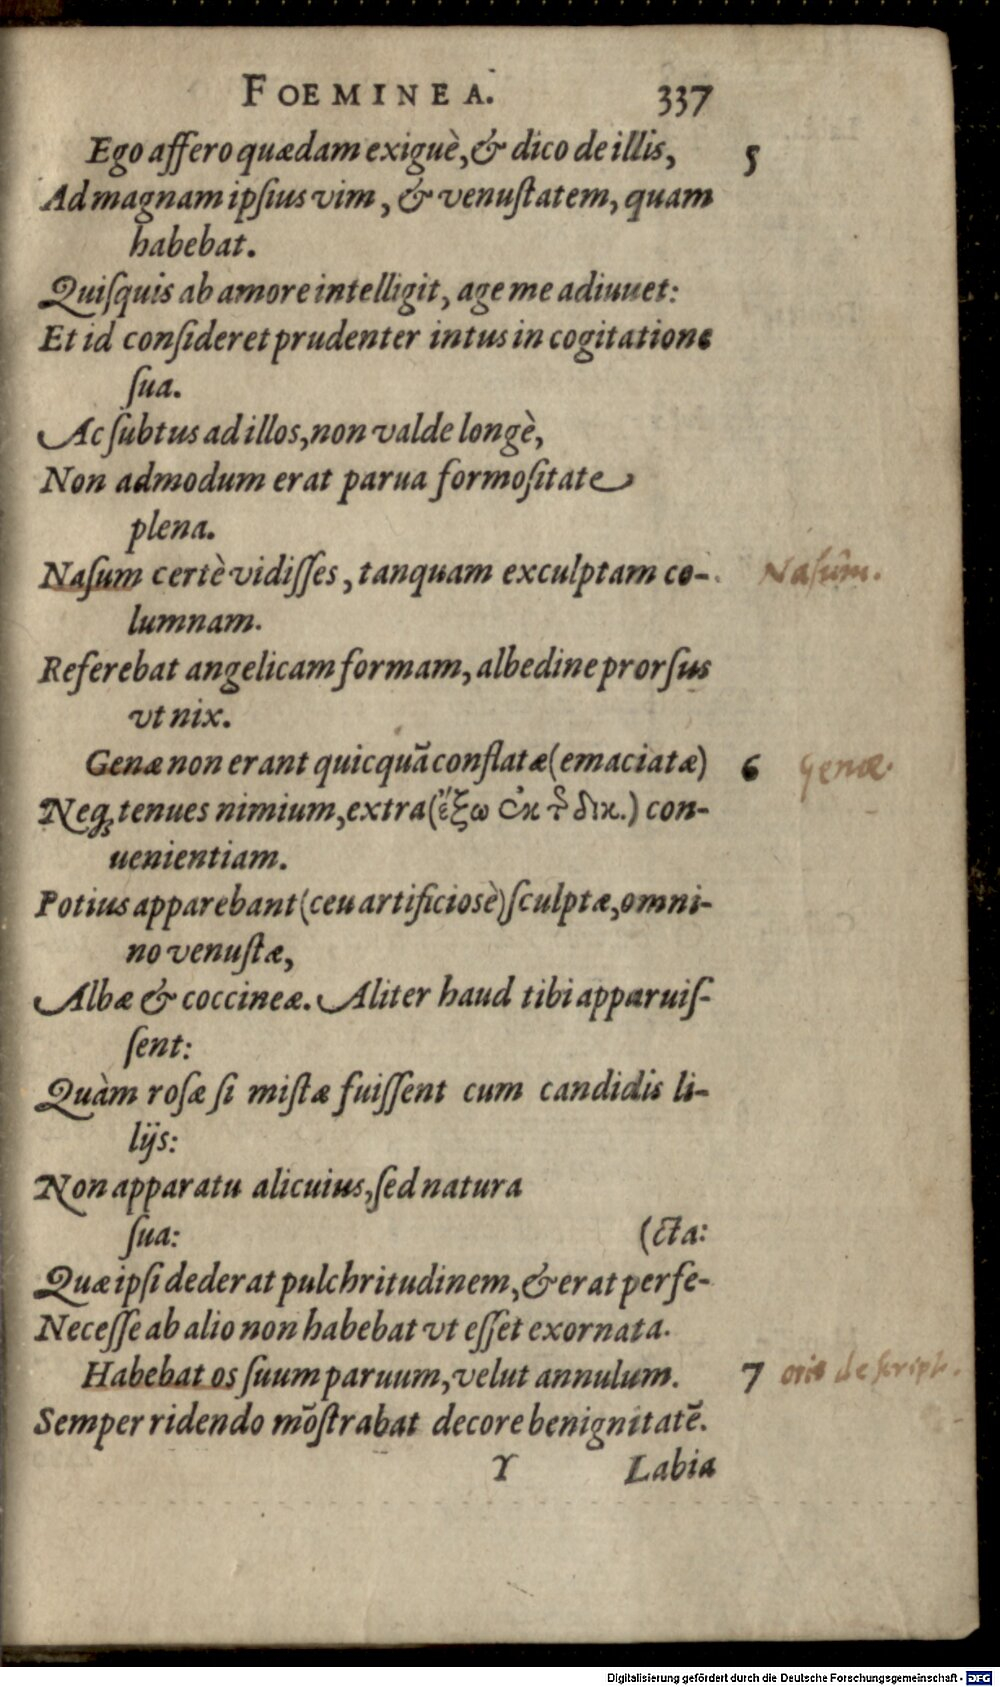 FOEMINEA. 337
Ego affero quædam exiguè, & dico de illis, 5
Ad magnam ipſius vim, & venuſtatem, quam
habebat.
Quiſquis ab amore intelligit, age me adiuuet:
Et id conſideret prudenter intus in cogitatione
ſua.
Ac ſubtus ad illos, non valde longè,
Non admodum erat parua formoſitate
plena.
Naſum certè vidiſſes, tanquam exculptam co- Naſum.
lumnam.
Referebat angelicam formam, albedine prorſus
vt nix.
Genæ non erant quicquã conflatæ (emaciatæ) 6 Genæ.
Neq; tenues nimium, extra (ἔξω ἐκ τ͂ δικ.) con-
uenientiam.
Potius apparebant (ceu artificiosè) ſculptæ, omni-
no venuſtæ,
Albæ & coccineæ. Aliter haud tibi apparuiſ-
ſent:
Quàm roſæ ſi miſtæ fuiſſent cum candidis li-
lijs:
Non apparatu alicuius, ſed natura
ſua: (cta:
Quæ ipſi dederat pulchritudinem, & erat perfe-
Neceſſe ab alio non habebat vt eſſet exornata.
Habebat os ſuum paruum, velut annulum. 7 oris deſcript.
Semper ridendo mõſtrabat decore benignitatẽ.
Y Labia
Digitalisierung gefördert durch die Deutsche Forschungsgemeinschaft - DFG